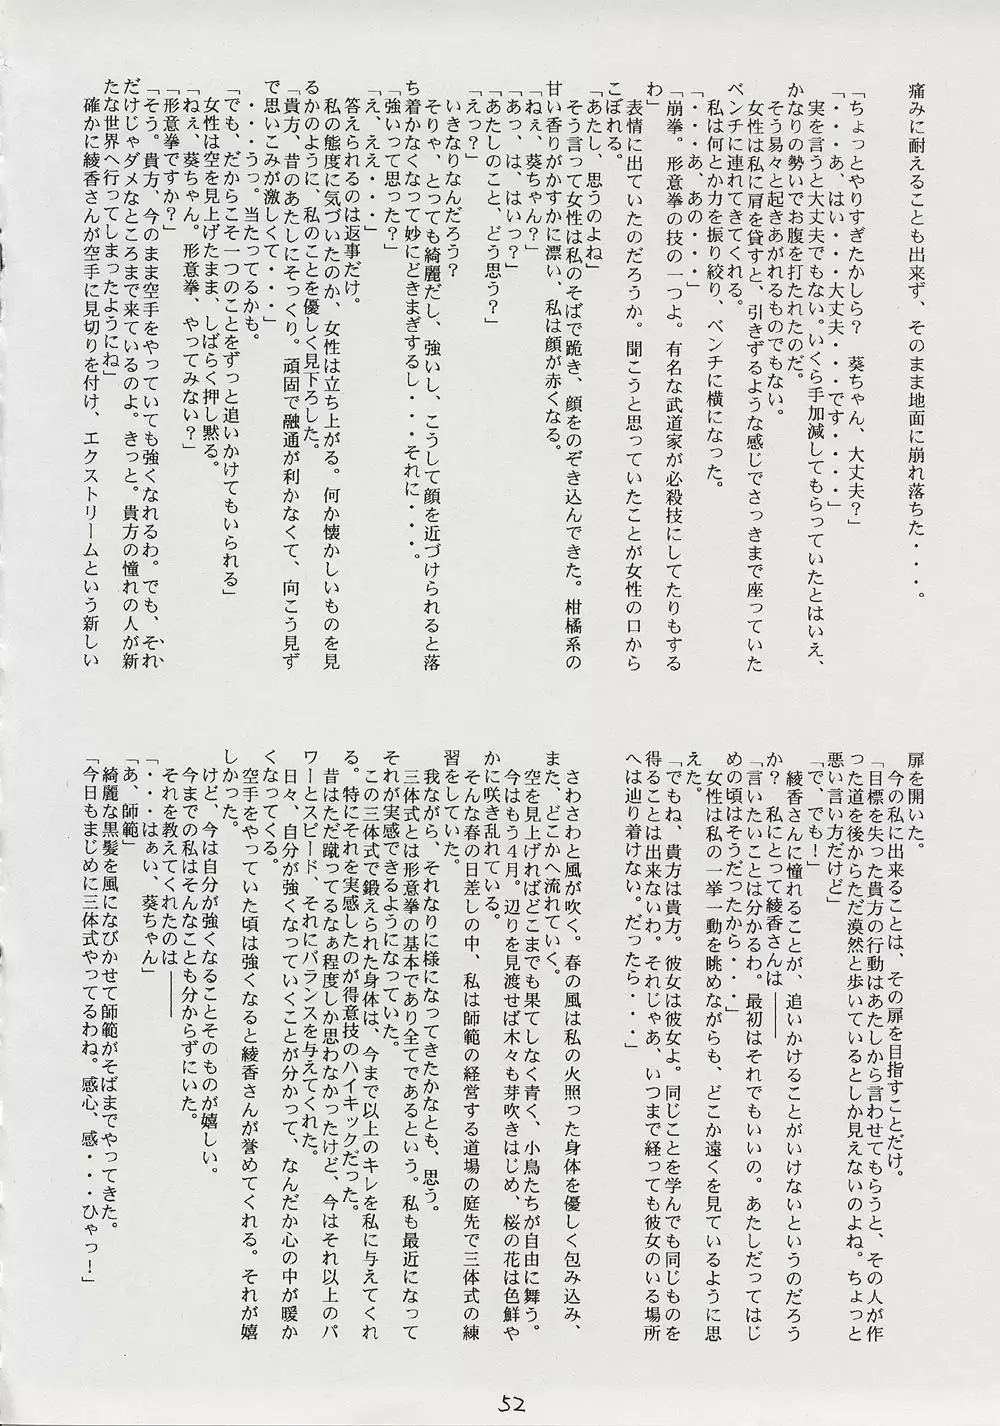 痛みに耐えることも出来ず、そのまま地面に崩れ落ちた・・・。
「ちょっとやりすぎたかしら？　葵ちゃん、大丈夫？」
「・・・あ、はい・・・大丈夫・・・です・・・」
実を言うと大丈夫でもない。いくら手加減してもらっていたとはいえ、
かなりの勢いでお腹を打たれたのだ。
そう易々と起きあがれるものでもない。
女性は私に肩を貸すと、引きずるような感じでさっきまで座っていた
ベンチに連れてきてくれる。
私は何とか力を振り絞り、ベンチに横になった。
「・・・あ、あの・・・」
「崩拳。形意拳の技の一つよ。有名な武道家が必殺技にしてたりもする
わ」
表情に出ていたのだろうか。聞こうと思っていたことが女性の口から
こぼれる。
「あたし、思うのよね」
そう言って女性は私のそばで跪き、顔をのぞき込んできた。柑橘系の
甘い香りがかすかに漂い、私は顔が赤くなる。
「ねぇ、葵ちゃん？」
「あっ、は、はいっ？」
「あたしのこと、どう思う？」
「えっ？」
いきなりなんだろう？
そりゃ、とっても綺麗だし、強いし、こうして顔を近づけられると落
ち着かなくなって妙にどきまぎするし・・・それに・・・。
「強いって思った？」
「え、ええ・・・」
答えられるのは返事だけ。
私の態度に気づいたのか、女性は立ち上がる。何か懐かしいものを見
るかのように、私のことを優しく見下ろした。
「貴方、昔のあたしにそっくり。頑固で融通が利かなくて、向こう見ず
で思いこみが激しくて・・・」
・・・うっ。当たってるかも。
「でも、だからこそ一つのことをずっと追いかけてもいられる」
女性は空を見上げたまま、しばらく押し黙る。
「ねぇ、葵ちゃん。形意拳、やってみない？」
「形意拳ですか？」
「そう。貴方、今のまま空手をやっていても強くなれるわ。でも、それ
だけじゃダメなところまで来ているのよ。きっと。貴方の憧れの人が新
たな世界へ行ってしまったようにね」
確かに綾香さんが空手に見切りを付け、エクストリームという新しい
扉を開いた。
今の私に出来ることは、その扉を目指すことだけ。
「目標を失った貴方の行動はあたしから言わせてもらうと、その人が作
った道を後からただ漠然と歩いているとしか見えないのよね。ちょっと
悪い言い方だけど」
「で、でも！」
綾香さんに憧れることが、追いかけることがいけないというのだろう
か？　私にとって綾香さんは――
「言いたいことは分かるわ。最初はそれでもいいの。あたしだってはじ
めの頃はそうだったから・・・」
女性は私の一挙一動を眺めながらも、どこか遠くを見ているように思
えた。
「でもね、貴方は貴方。彼女は彼女よ。同じことを学んでも同じものを
得ることは出来ないわ。それじゃあ、いつまで経っても彼女のいる場所
へは辿り着けない。だったら・・・」
さわさわと風が吹く。春の風は私の火照った身体を優しく包み込み、
また、どこかへ流れていく。
空を見上げればどこまでも果てしなく青く、小鳥たちが自由に舞う。
今はもう４月。辺りを見渡せば木々も芽吹きはじめ、桜の花は色鮮や
かに咲き乱れている。
そんな春の日差しの中、私は師範の経営する道場の庭先で三体式の練
習をしていた。
我ながら、それなりに様になってきたかなとも、思う。
三体式とは形意拳の基本であり全てであるという。私も最近になって
それが実感できるようになっていた。
この三体式で鍛えられた身体は、今まで以上のキレを私に与えてくれ
る。特にそれを実感したのが得意技のハイキックだった。
昔はただ蹴ってるなぁ程度しか思わなかったけど、今はそれ以上のパ
ワーとスピード、それにバランスを与えてくれた。
日々、自分が強くなっていくことが分かって、なんだか心の中が暖か
くなってくる。
空手をやっていた頃は強くなると綾香さんが誉めてくれる。それが嬉
しかった。
けど、今は自分が強くなることそのものが嬉しい。
今までの私はそんなことも分からずにいた。
それを教えてくれたのは――――
「・・・はぁい、葵ちゃん」
「あ、師範」
綺麗な黒髪を風になびかせて師範がそばまでやってきた。
「今日もまじめに三体式やってるわね。感心、感・・・ひゃっ！」
52